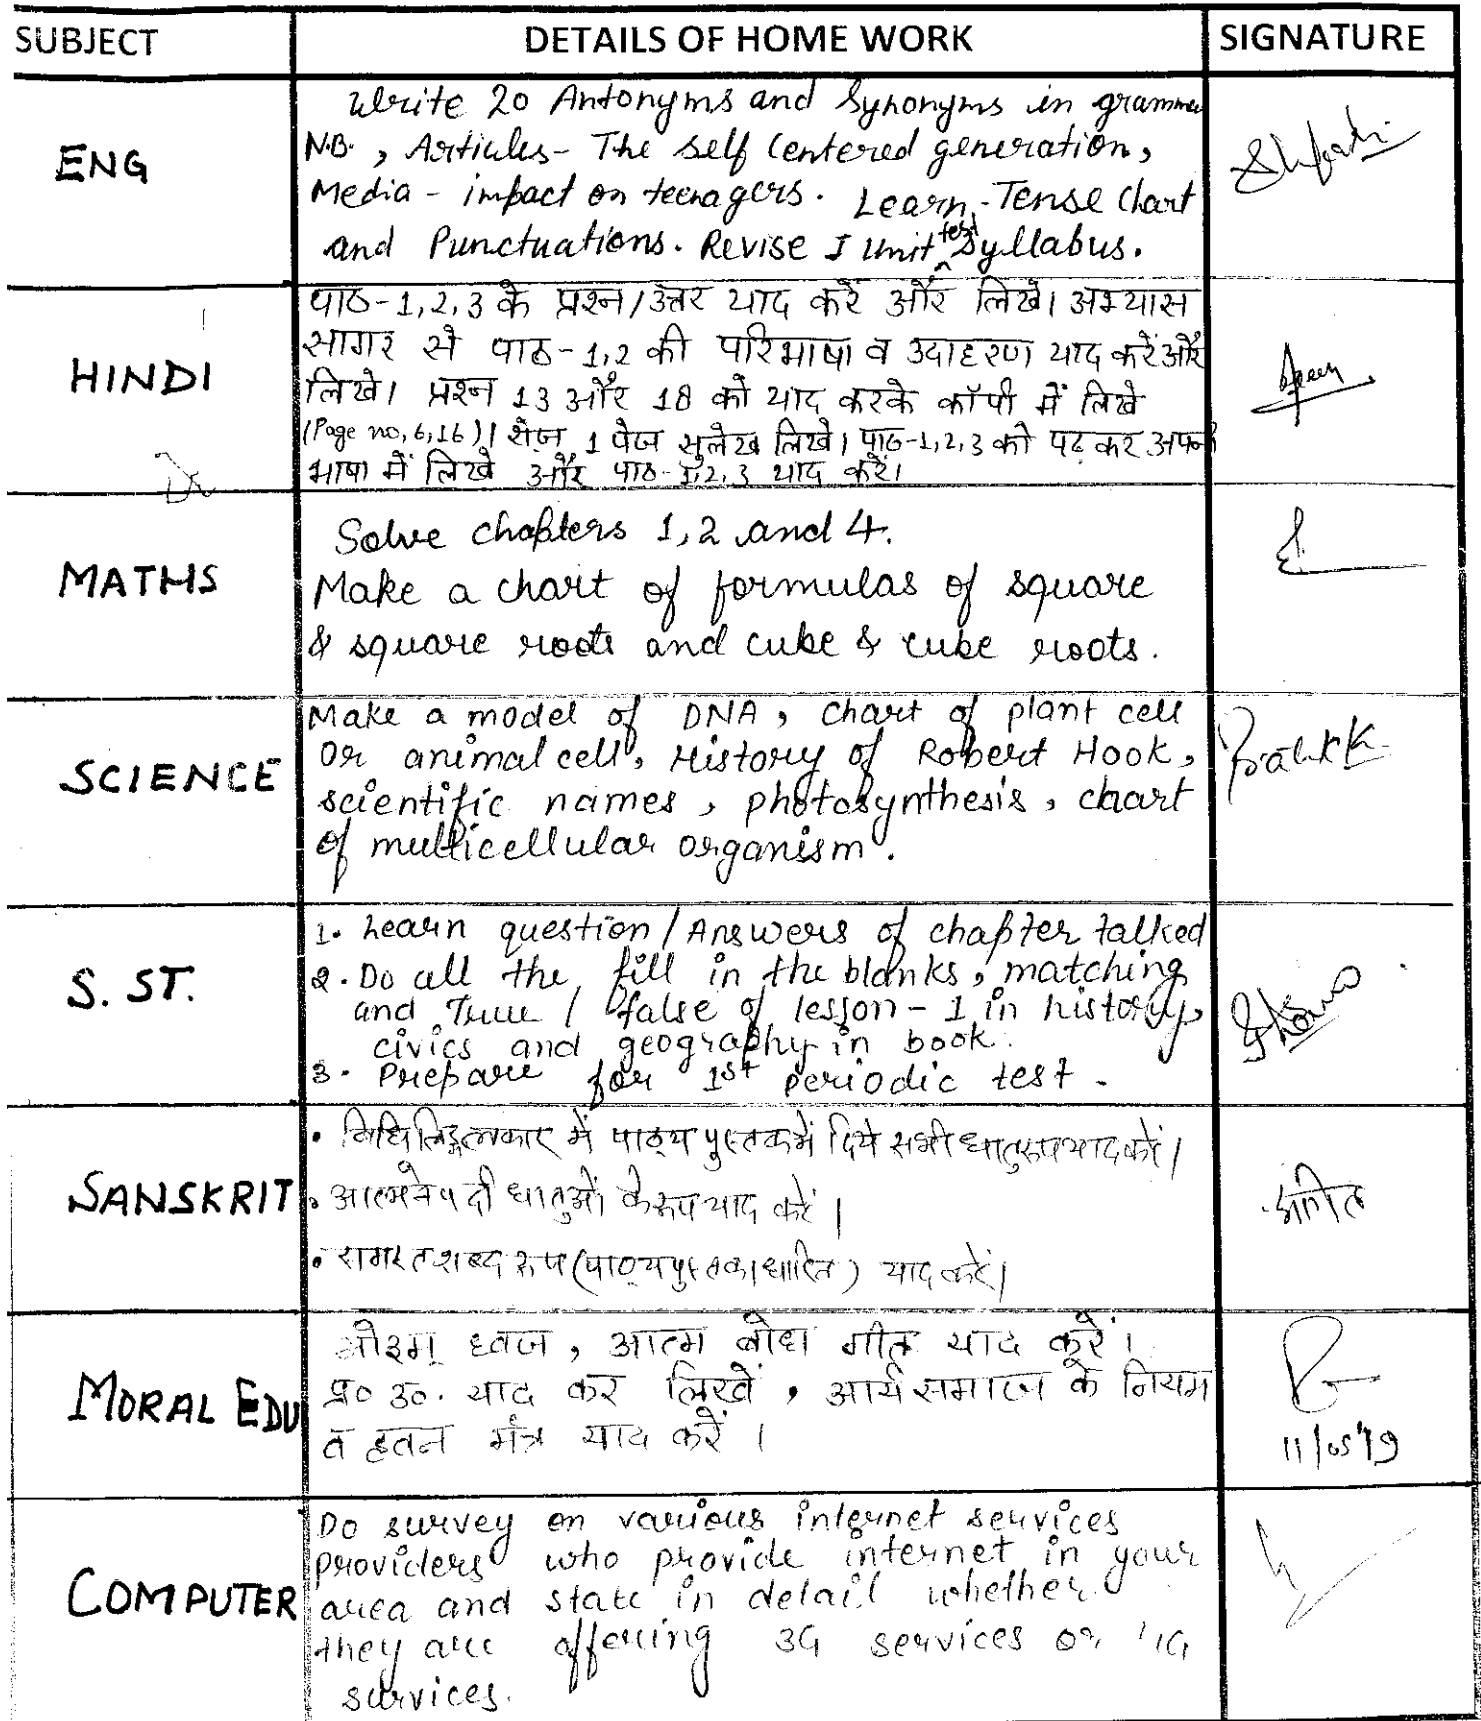 SUBJECT DETAILS OF HOME WORK SIGNATURE
ENG
Write 20 Antonyms and Synonyms in grammar
N.B. , Articles- The self centered generation,
Media - impact on teenagers. Learn - Tense chart
and Punctuations. Revise I Unit test Syllabus.
HINDI
पाठ-1,2,3 के प्रश्न/उत्तर याद करें और लिखें। अभ्यास
सागर से पाठ-1,2 की परिभाषा व उदाहरण याद करें और
लिखें। प्रश्न 13 और 18 को याद करके कॉपी में लिखें
(Page no, 6,16)। रोज़ 1 पेज सुलेख लिखें। पाठ-1,2,3 को पढ़ कर अपनी
भाषा में लिखें और पाठ-1,2,3 याद करें।
MATHS
Solve chapters 1,2 and 4.
Make a chart of formulas of square
& square roots and cube & cube roots.
SCIENCE
Make a model of DNA, chart of plant cell
or animal cell, History of Robert Hook,
scientific names, photosynthesis, chart
of multicellular organism.
S. ST.
1. Learn question/Answers of chapter talked
2. Do all the fill in the blanks, matching
and True / false of lesson-1 in history,
civics and geography in book.
3. Prepare for 1st periodic test.
SANSKRIT
• विधिलिङ्लकार में पाठ्य पुस्तक में दिये सभी धातुरूप याद करें।
• आत्मनेपदी धातुओं के रूप याद करें।
• समस्त शब्द रूप (पाठ्यपुस्तकाधारित) याद करें।
अनित
MORAL EDU
ओ३म् ध्वज, आत्म बोध गीत याद करें।
प्र० उ०. याद कर लिखें, आर्य समाज के नियम
व हवन मंत्र याद करें।
11/05/19
COMPUTER
Do survey on various internet services
providers who provide internet in your
area and state in detail whether
they are offering 3G services or 4G
survices.